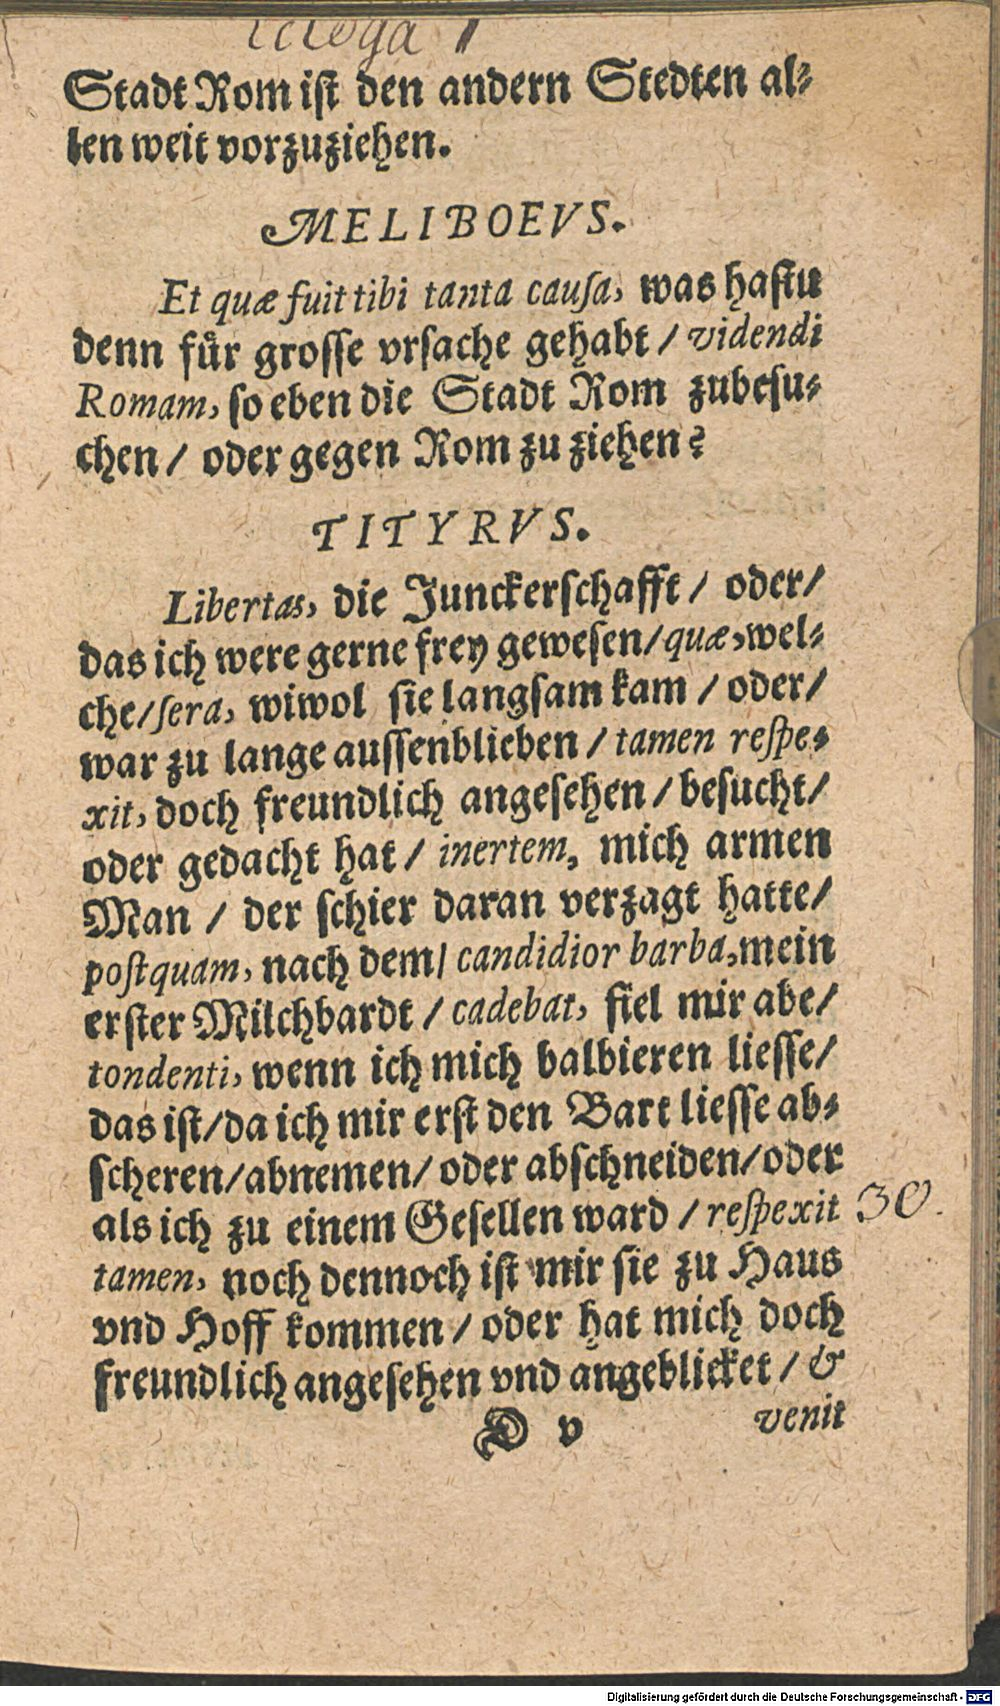 Ecloga 1
Stadt Rom ist den andern Stedten al-
len weit vorzuziehen.
MELIBOEVS.
Et quæ fuit tibi tanta causa, was hastu
denn fůr grosse vrsache gehabt / videndi
Romam, so eben die Stadt Rom zubesu-
chen / oder gegen Rom zu ziehen?
TITYRVS.
Libertas, die Junckerschafft / oder /
das ich were gerne frey gewesen / quæ, wel-
che / sera, wiwol sie langsam kam / oder /
war zu lange aussenblieben / tamen respe-
xit, doch freundlich angesehen / besucht /
oder gedacht hat / inertem, mich armen
Man / der schier daran verzagt hatte /
postquam, nach dem / candidior barba, mein
erster Milchbardt / cadebat, fiel mir abe /
tondenti, wenn ich mich balbieren liesse /
das ist / da ich mir erst den Bart liesse ab-
scheren / abnemen / oder abschneiden / oder
als ich zu einem Gesellen ward / respexit 30.
tamen, noch dennoch ist mir sie zu Haus
vnd Hoff kommen / oder hat mich doch
freundlich angesehen vnd angeblicket / &
D v venit
Digitalisierung gefördert durch die Deutsche Forschungsgemeinschaft - DFG